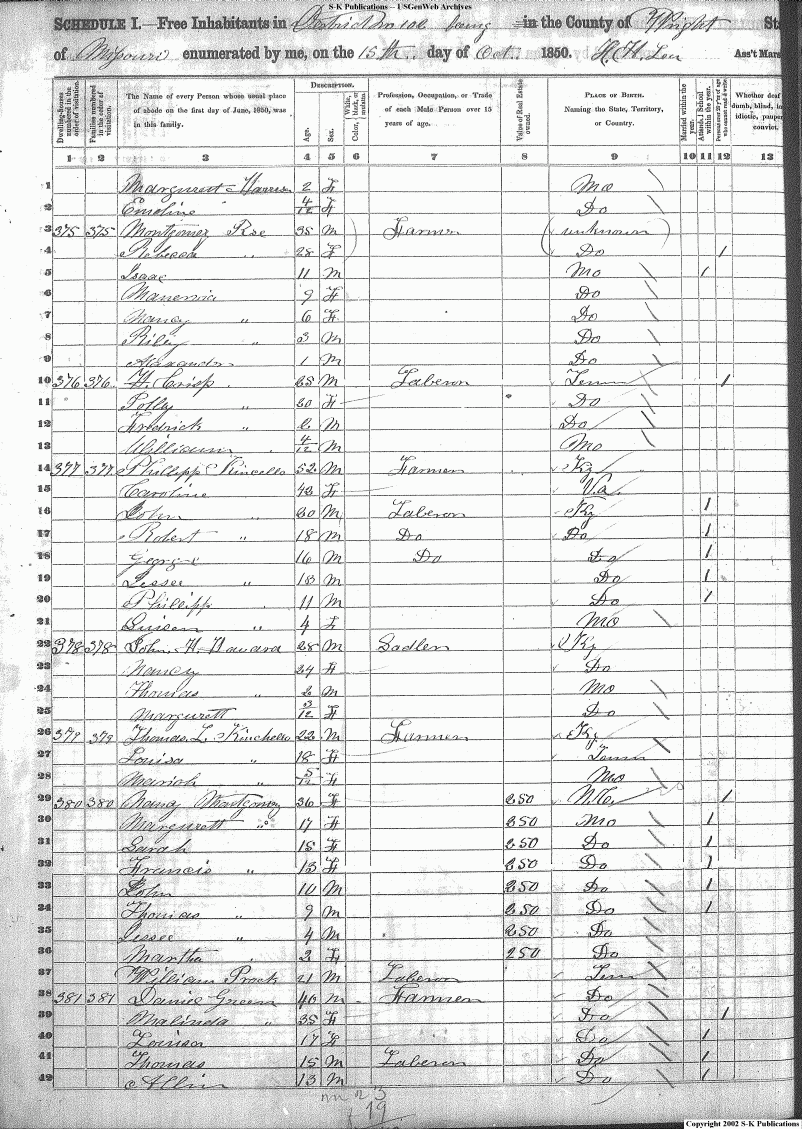 S-K Publications -- USGenWeb Archives
SCHEDULE I.—Free Inhabitants in District No 102 being in the County of Wright Sta
of Missouri enumerated by me, on the 15th day of Oct. 1850. Ass't Mars
Dwelling-houses numbered in the order of visitation. Families numbered in the order of visitation. The Name of every Person whose usual place of abode on the first day of June, 1850, was in this family. DESCRIPTION. Age. Sex. Color, White, black, or mulatto. Profession, Occupation, or Trade of each Male Person over 15 years of age. Value of Real Estate owned. PLACE OF BIRTH. Naming the State, Territory, or Country. Married within the year. Attended School within the year. Persons over 20 y'rs of age who cannot read & write. Whether deaf dumb, blind, in idiotic, pauper convict.
1 2 3 4 5 6 7 8 9 10 11 12 13
1 Margurett Harris 2 F Mo
2 Emoline 4/12 F Do
3 375 375 Montgomez Roe 35 M Farmer unknown
4 Rebecca " 28 F Do 1
5 Isaac 11 M Mo 1
6 Manervia 9 F Do
7 Nancy " 6 F Do
8 Riley " 3 M Do
9 Alexander 1 M Do
10 376 376 H. Crisp 25 M Laberor Tenn 1
11 Polly " 20 F Do
12 Fredrick " 2 M Do
13 William 4/12 M Mo
14 377 377 Phillipp Kincello 52 M Farmer Ky
15 Caroline 43 F Va.
16 John " 20 M Laberor Ky 1
17 Robert " 18 M Do Do 1
18 George 16 M Do Do 1
19 Jessee " 13 M Do 1
20 Phillipp 11 M Do 1
21 " 4 F Mo
22 378 378 John H. 28 M Sadler Ky
23 Nancy 24 F Do
24 Thomas " 2 M Mo
25 Margurett 3/12 F Do
26 379 379 Thomas L. Kinchello 22 M Farmer Ky
27 Louisa " 18 F Tenn
28 Mariah " 5/12 F Mo
29 380 380 Nancy Montgomez 36 F 250 N.C. 1
30 Margurett " 17 F 250 Mo 1
31 Sarah 15 F 250 Do 1
32 Francis " 13 F 250 Do 1
33 John 10 M 250 Do 1
34 Thomas " 9 M 250 Do 1
35 Jessee " 4 M 250 Do
36 Martha 2 F 250 Do
37 William Prock 21 M Laberor Tenn
38 381 381 Daniel Green 40 M Farmer Do
39 Malinda " 35 F Do 1
40 Louisa 17 F Do 1
41 Thomas 15 M Laberor Do 1
42 Allin 13 M Do 1
19
Copyright 2002 S-K Publications